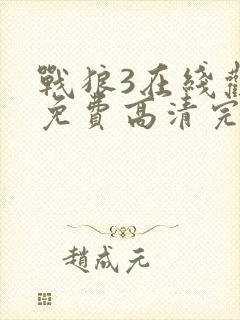 戰狼3在綫
免費高清完
趙成元